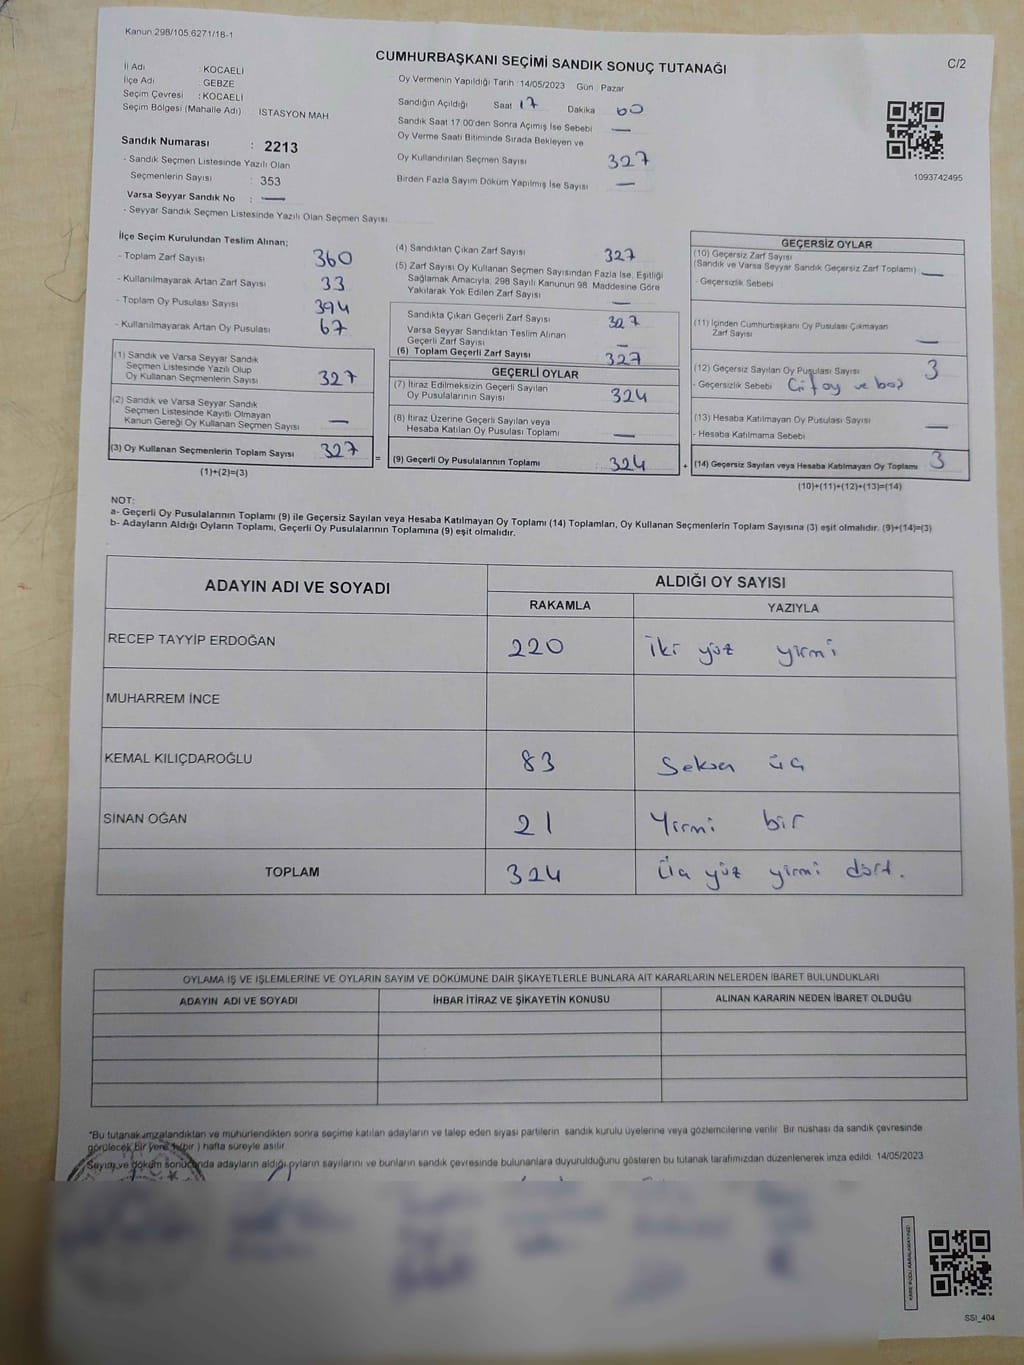 Kanun 298/105.6271/18-1
CUMHURBAŞKANI SEÇİMİ SANDIK SONUÇ TUTANAĞI
C/2
İl Adı : KOCAELİ
İlçe Adı : GEBZE
Seçim Çevresi : KOCAELİ
Seçim Bölgesi (Mahalle Adı) İSTASYON MAH
Sandık Numarası : 2213
- Sandık Seçmen Listesinde Yazılı Olan
Seçmenlerin Sayısı : 353
Varsa Seyyar Sandık No : —
- Seyyar Sandık Seçmen Listesinde Yazılı Olan Seçmen Sayısı
Oy Vermenin Yapıldığı Tarih : 14/05/2023 Gün : Pazar
Sandığın Açıldığı Saat 17 Dakika 00
Sandık Saat 17:00'den Sonra Açımış İse Sebebi —
Oy Verme Saati Bitiminde Sırada Bekleyen ve
Oy Kullandırılan Seçmen Sayısı 327
Birden Fazla Sayım Döküm Yapılmış İse Sayısı —
1093742495
İlçe Seçim Kurulundan Teslim Alınan;
- Toplam Zarf Sayısı 360
- Kullanılmayarak Artan Zarf Sayısı 33
- Toplam Oy Pusulası Sayısı 394
- Kullanılmayarak Artan Oy Pusulası 67
(1) Sandık ve Varsa Seyyar Sandık
Seçmen Listesinde Yazılı Olup
Oy Kullanan Seçmenlerin Sayısı 327
(2) Sandık ve Varsa Seyyar Sandık
Seçmen Listesinde Kayıtlı Olmayan
Kanun Gereği Oy Kullanan Seçmen Sayısı —
(3) Oy Kullanan Seçmenlerin Toplam Sayısı 327 =
(1)+(2)=(3)
(4) Sandıktan Çıkan Zarf Sayısı 327
(5) Zarf Sayısı Oy Kullanan Seçmen Sayısından Fazla İse, Eşitliği
Sağlamak Amacıyla, 298 Sayılı Kanunun 98. Maddesine Göre
Yakılarak Yok Edilen Zarf Sayısı —
Sandıkta Çıkan Geçerli Zarf Sayısı 327
Varsa Seyyar Sandıktan Teslim Alınan
Geçerli Zarf Sayısı —
(6) Toplam Geçerli Zarf Sayısı 327
GEÇERLİ OYLAR
(7) İtiraz Edilmeksizin Geçerli Sayılan
Oy Pusulalarının Sayısı 324
(8) İtiraz Üzerine Geçerli Sayılan veya
Hesaba Katılan Oy Pusulası Toplamı —
(9) Geçerli Oy Pusulalarının Toplamı : 324 +
GEÇERSİZ OYLAR
(10) Geçersiz Zarf Sayısı
(Sandık ve Varsa Seyyar Sandık Geçersiz Zarf Toplamı) —
- Geçersizlik Sebebi
(11) İçinden Cumhurbaşkanı Oy Pusulası Çıkmayan
Zarf Sayısı —
(12) Geçersiz Sayılan Oy Pusulası Sayısı 3
- Geçersizlik Sebebi Çift oy ve boş
(13) Hesaba Katılmayan Oy Pusulası Sayısı —
- Hesaba Katılmama Sebebi
(14) Geçersiz Sayılan veya Hesaba Katılmayan Oy Toplamı 3
(10)+(11)+(12)+(13)=(14)
NOT:
a- Geçerli Oy Pusulalarının Toplamı (9) ile Geçersiz Sayılan veya Hesaba Katılmayan Oy Toplamı (14) Toplamları, Oy Kullanan Seçmenlerin Toplam Sayısına (3) eşit olmalıdır. (9)+(14)=(3)
b- Adayların Aldığı Oyların Toplamı, Geçerli Oy Pusulalarının Toplamına (9) eşit olmalıdır.
ADAYIN ADI VE SOYADI ALDIĞI OY SAYISI
RAKAMLA YAZIYLA
RECEP TAYYİP ERDOĞAN 220 iki yüz yirmi
MUHARREM İNCE
KEMAL KILIÇDAROĞLU 83 Seksen üç
SİNAN OĞAN 21 Yirmi bir
TOPLAM 324 Üç yüz yirmi dört.
OYLAMA İŞ VE İŞLEMLERİNE VE OYLARIN SAYIM VE DÖKÜMÜNE DAİR ŞİKAYETLERLE BUNLARA AİT KARARLARIN NELERDEN İBARET BULUNDUKLARI
ADAYIN ADI VE SOYADI İHBAR İTİRAZ VE ŞİKAYETİN KONUSU ALINAN KARARIN NEDEN İBARET OLDUĞU
*Bu tutanak imzalandıktan ve mühürlendikten sonra seçime katılan adayların ve talep eden siyasi partilerin sandık kurulu üyelerine veya gözlemcilerine verilir. Bir nüshası da sandık çevresinde
görülecek bir yere 1 (bir ) hafta süreyle asılır.
Sayım ve döküm sonucunda adayların aldığı oyların sayılarını ve bunların sandık çevresinde bulunanlara duyurulduğunu gösteren bu tutanak tarafımızdan düzenlenerek imza edildi. 14/05/2023
SSI_404